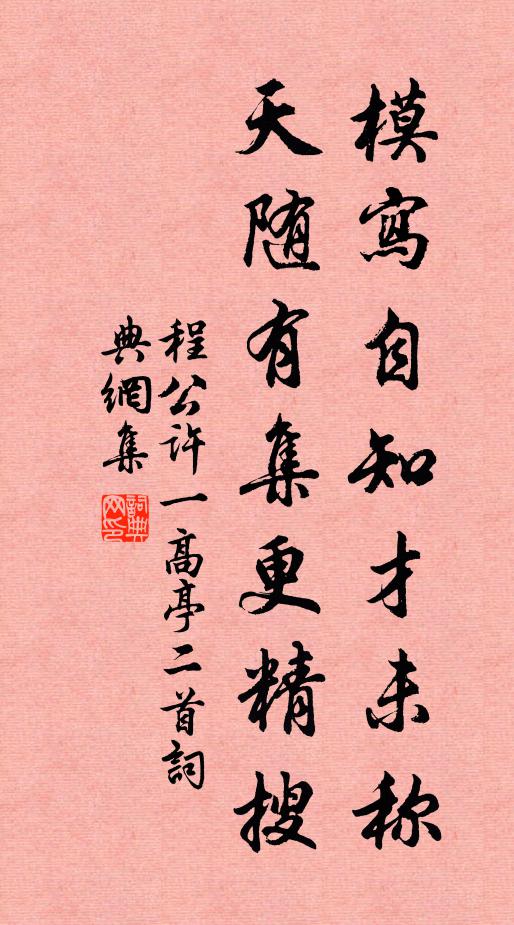 模寫自知才未称
天随有集更精搜
程公許一高亭二首詞
典網集
詞典网印